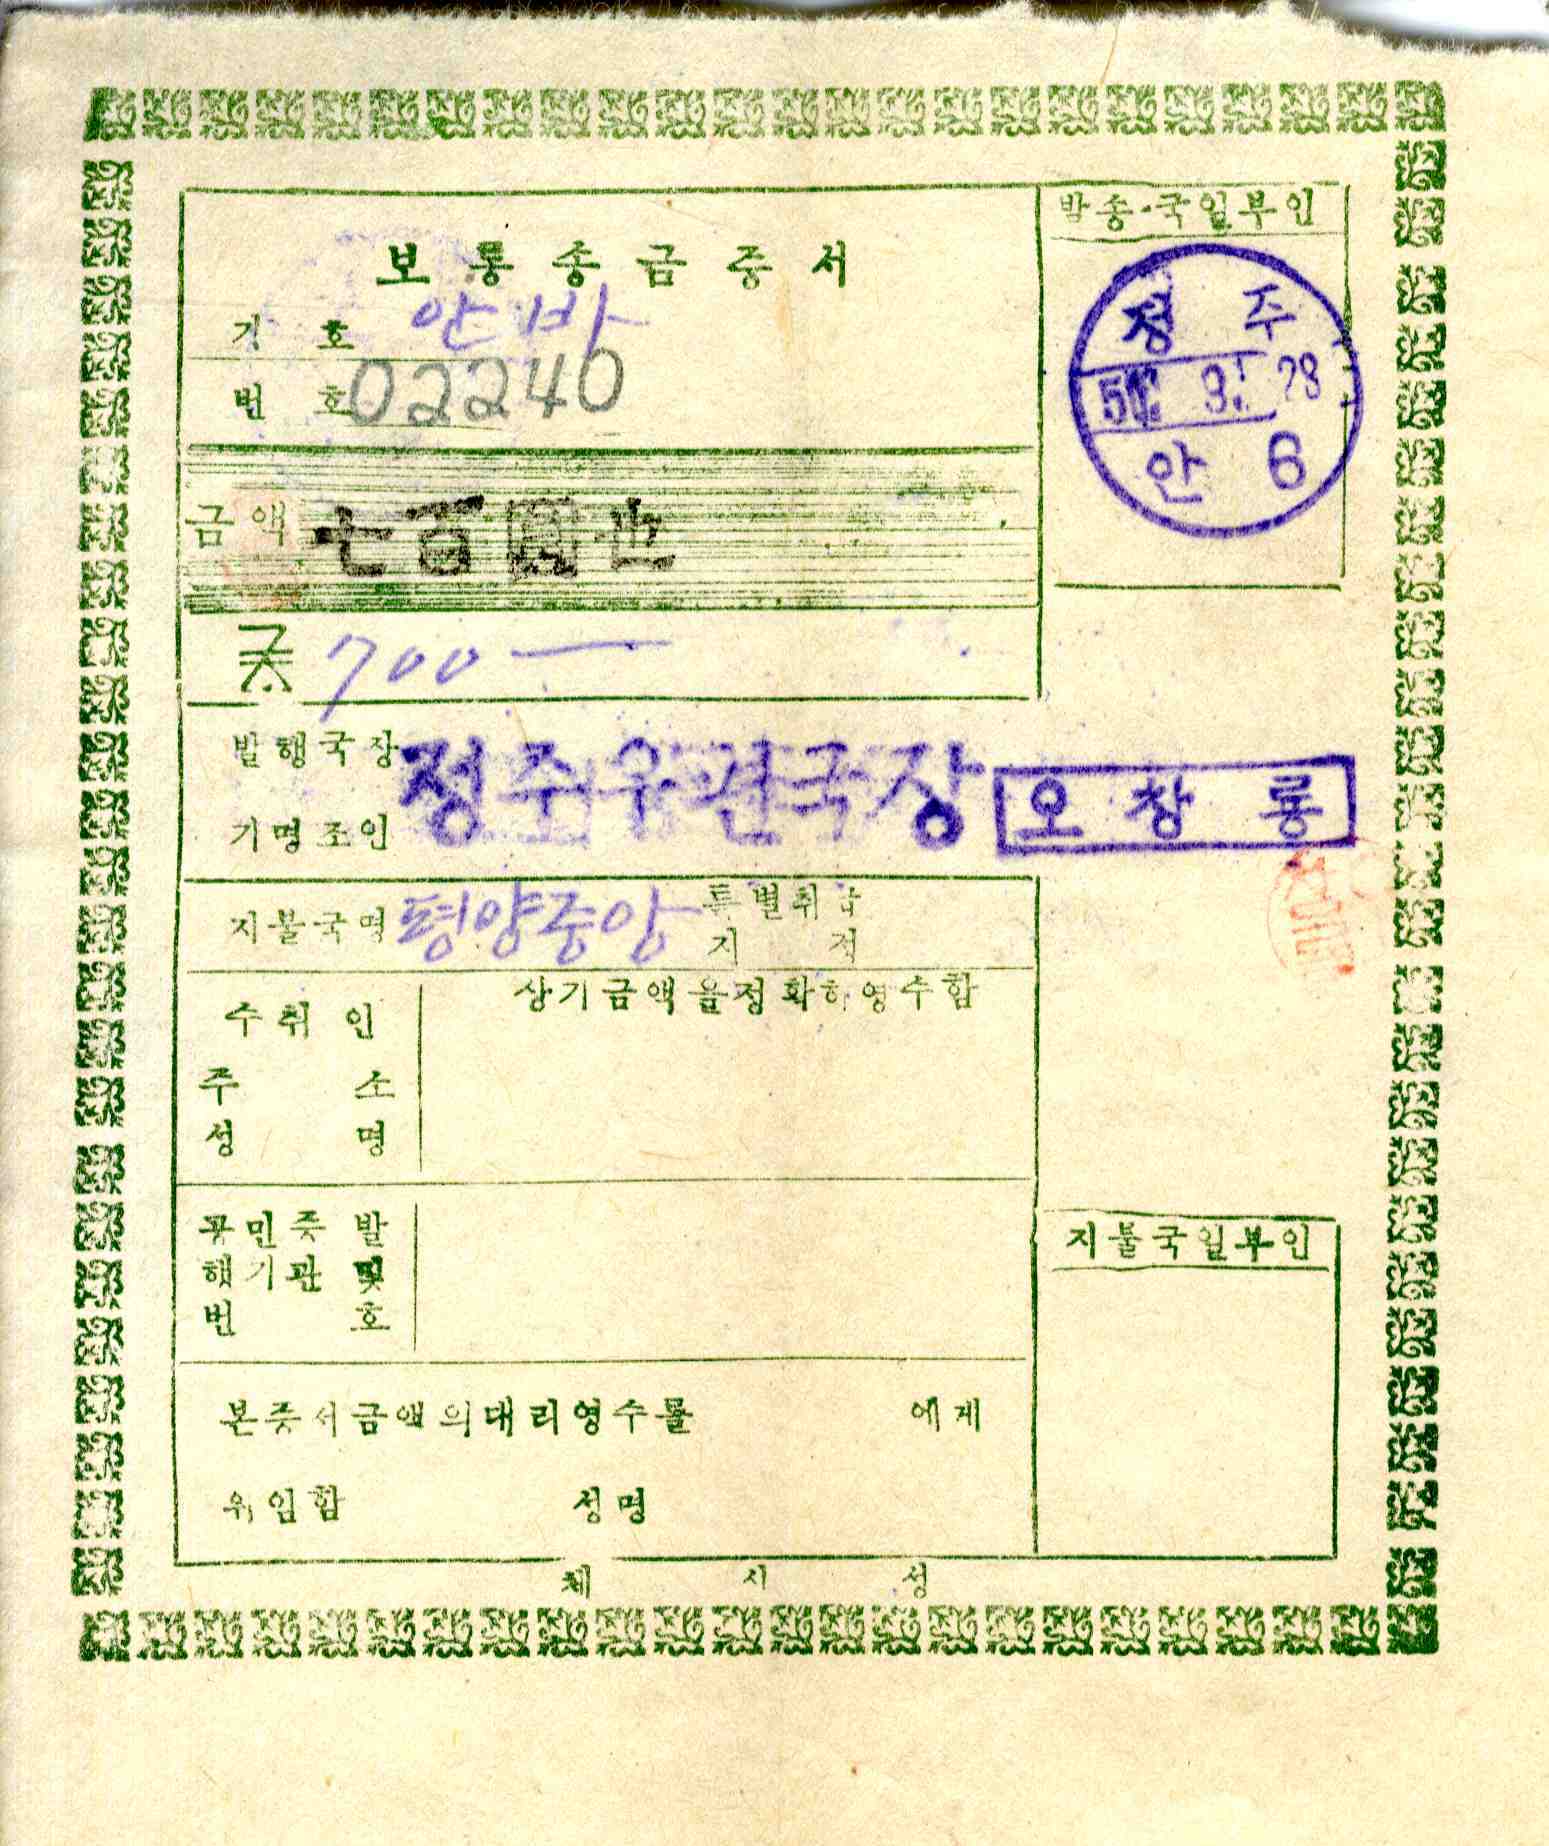 보통송금증서
기호 안바
번호 02240
금액 七百圓也
금 700—
발행국장
기명조인
정주우편국장 오창룡
지불국명 평양중앙
특별취급
지정
상기금액을정확히영수함
수취인
주소
성명
공민증발
행기관및
번호
본증서금액의대리영수를 에게
위임함 성명
체시성
발송국일부인
정주
안 6
지불국일부인